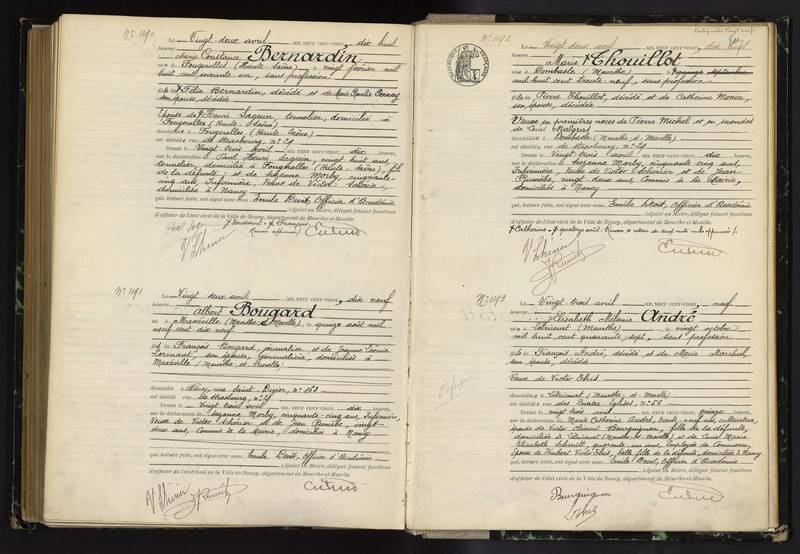 N° 1190
Le Vingt deux avril MIL NEUF CENT-VINGT, dix huit
heures,
Marie Constance Bernardin,
née à Fougerolles (Haute-Saône) le vingt février mil
huit cent soixante un, sans profession
Félix Bernardin, décédé et de Marie
son épouse, décédée
Épouse de Henri Saguin, tonnelier, domicilié à
Fougerolles (Haute-Saône)
domiciliée à Fougerolles, (Haute-Saône)
est décédée rue de Strasbourg, n° 29
Dressé le Vingt trois avril MIL NEUF CENT-VINGT, dix heures,
sur la déclaration de Paul Henri Saguin, vingt huit ans,
tonnelier, domicilié à Fougerolles (Haute-Saône), fils
de la défunte, et de Suzanne Morby, cinquante-
cinq ans, Infirmière, veuve de Victor
domiciliés à Nancy
qui, lecture faite, ont signé avec nous Emile Devit, Officier d'Académie
Adjoint au Maire, délégué faisant fonctions
d'officier de l'état civil de la Ville de Nancy, département de Meurthe-et-Moselle.
N° 1191
Le Vingt deux avril MIL NEUF CENT-VINGT, dix neuf
heures,
Albert Bougard
né à Maxéville (Meurthe & Moselle) le quinze août mil
neuf cent dix neuf
fils de François Bougard, journalier et de Jeanne
son épouse, journalière, domiciliés à
Maxéville (Meurthe et Moselle)
domicilié à Nancy, rue Saint Dizier, n° 163
est décédé rue de Strasbourg, n° 29
Dressé le Vingt trois avril MIL NEUF CENT-VINGT, dix heures,
sur la déclaration de Suzanne Morby, cinquante-cinq ans, Infirmière,
Veuve de Victor et de Jean vingt-
deux ans, Commis à la Mairie, domiciliés à Nancy
qui, lecture faite, ont signé avec nous Emile Devit, Officier d'Académie
Adjoint au Maire, délégué faisant fonctions
d'officier de l'état civil de la Ville de Nancy, département de Meurthe-et-Moselle.
N° 1192
Le Vingt deux avril MIL NEUF CENT-VINGT, dix
heures,
Marie Thouillot
née à Dombasle (Meurthe) le
mil huit cent trente neuf, sans profession
fille de Pierre Thouillot, décédé et de Catherine Monin,
son épouse, décédée
Veuve en premières noces de Pierre Michel et en secondes
de Louis Malgras
domiciliée à Dombasle (Meurthe et Moselle)
est décédée rue de Strasbourg, n° 29
Dressé le Vingt trois avril MIL NEUF CENT-VINGT, dix heures,
sur la déclaration de Suzanne Morby, cinquante cinq ans,
Infirmière, veuve de Victor et de Jean
vingt deux ans, Commis à la Mairie,
domiciliés à Nancy
qui, lecture faite, ont signé avec nous Emile Devit, Officier d'Académie
Adjoint au Maire, délégué faisant fonctions
d'officier de l'état civil de la Ville de Nancy, département de Meurthe-et-Moselle.
N° 1193
Le Vingt trois avril MIL NEUF CENT-VINGT, neuf
heures,
Elisabeth Mélanie André
née à Létricourt (Meurthe) le vingt octobre
mil huit cent quarante sept, sans profession
fille de François André, décédé et de Marie Marchal,
son épouse, décédée
Veuve de Victor
domiciliée à Létricourt (Meurthe et Moselle)
est décédée rue des Quatre Eglises, n° 55
Dressé le vingt trois avril MIL NEUF CENT-VINGT, quinze heures,
sur la déclaration de Marie Catherine André, trente neuf ans, cultivatrice,
épouse de Victor Clément Bourguignon, fille de la défunte,
domiciliée à Létricourt (Meurthe et Moselle) et de Louise Marie
Elisabeth Schmitt, quarante un ans, employée de Commerce,
épouse de Hubert Victor belle fille de la défunte, domiciliée à Nancy
qui, lecture faite, ont signé avec nous Emile Devit, Officier d'Académie
Adjoint au Maire, délégué faisant fonctions
d'officier de l'état civil de la Ville de Nancy, département de Meurthe-et-Moselle.
Bourguignon